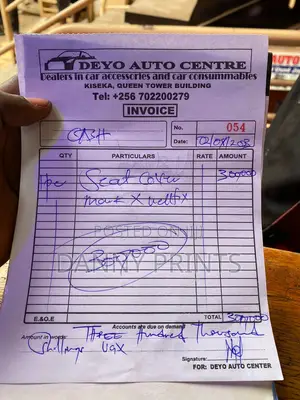 DEYO AUTO CENTRE
Dealers in car accessories and car consummables
KISEKA, QUEEN TOWER BUILDING
Tel: +256 702200279
INVOICE
CASH
No. 054
Date:
QTY PARTICULARS RATE AMOUNT
1pc Seat cover 300,000
mark X
POSTED ON
300,000
DANNY PRINTS
E.&O.E TOTAL 300,000
Accounts are due on demand
Amount in words: Three Hundred Thousand
Shillings UGX
Signature:
FOR: DEYO AUTO CENTER